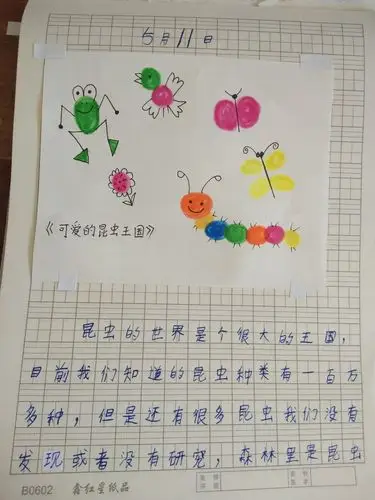 5月11日
《可爱的昆虫王国》
昆虫的世界是个很大的王国，
目前我们知道的昆虫种类有一百万
多种，但是还有很多昆虫我们没有
发现或者没有研究，森林里是昆虫
B0602 鑫红星纸品